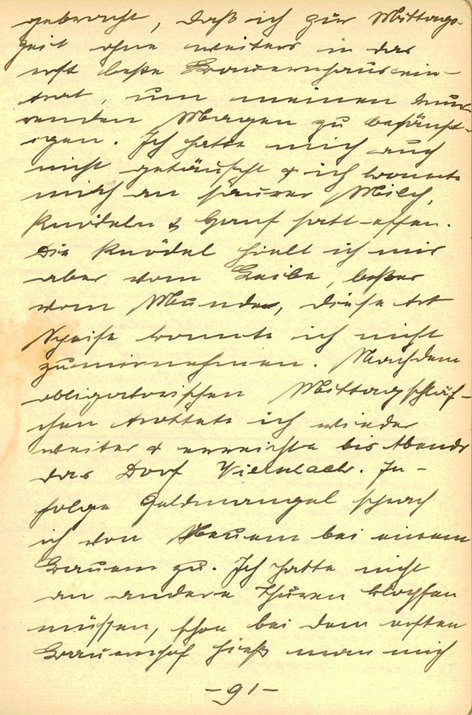 gebracht, daß ich zur Mittags-
zeit ohne weiters in das
erst beste Bauernhaus ein-
trat, um meinen knur-
renden Magen zu besänft-
igen. Ich hatte mich auch
nicht getäuscht & ich konnte
mich an saurer Milch,
Knödeln & Hanf satt essen.
Die Knödel hielt ich mir
aber vom Leibe, besser
vom Munde, diese Art
Speise konnte ich nicht
zumirnehmen. Nachdem
obligatorischen Mittagschläf-
chen trottete ich wieder
weiter & erreichte bis Abends
das Dorf. In-
folge Geldmangel sprach
ich von Neuem bei einem
Bauern zu. Ich hatte nicht
an andere Thüren klopfen
müssen, schon bei dem ersten
Bauernhof hieß man mich
-91-